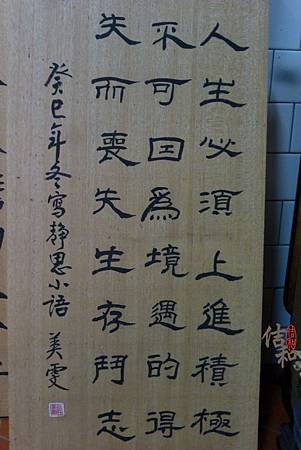 人生必須上進積極
不可因為境遇的得
失而喪失生存鬥志
癸巳年冬寫靜思小語 美雯